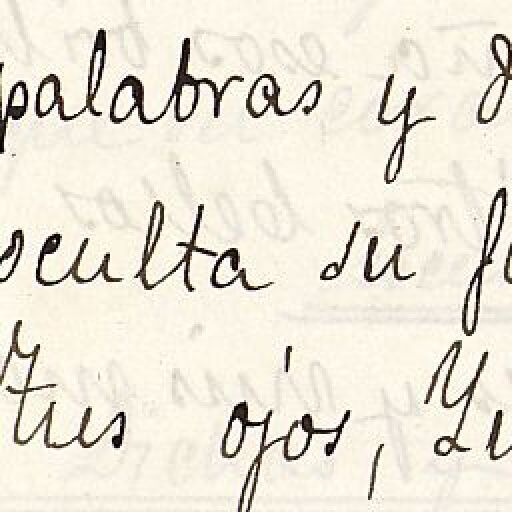 palabras y
sculta su
Tus ojos,